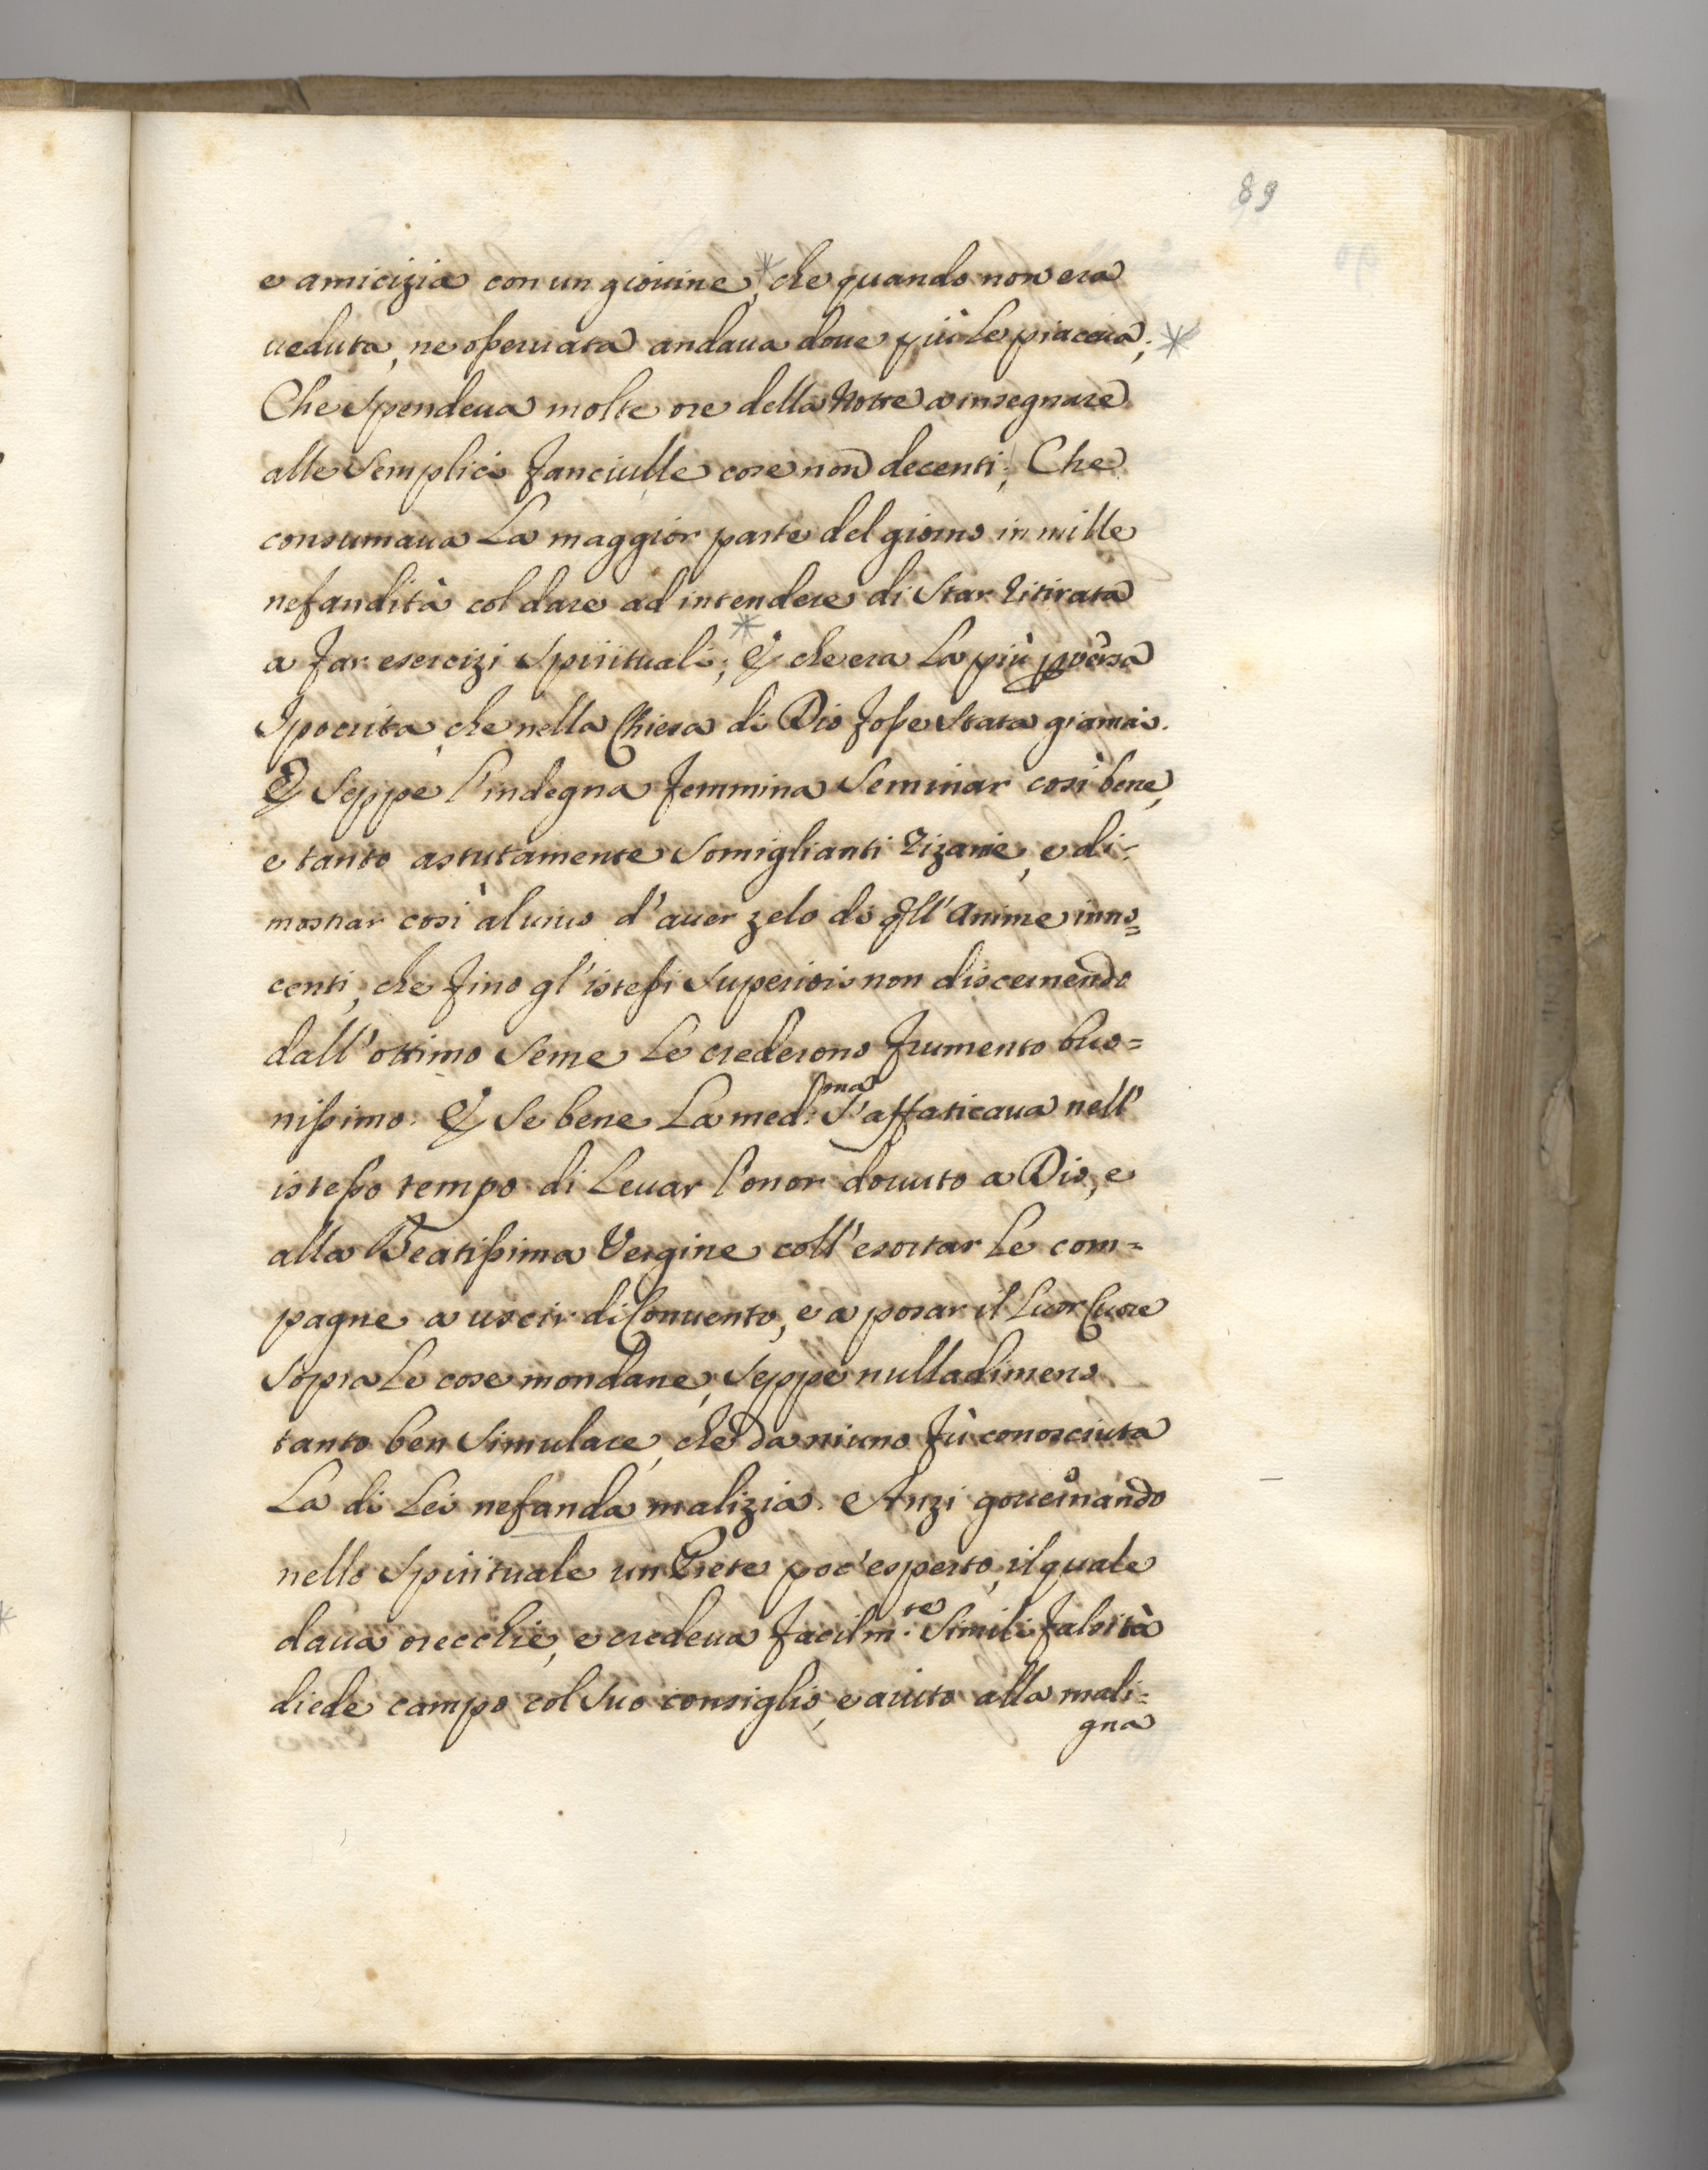 89
e amicizia con un giovine,* che quando non era
ueduta, ne osseruata andaua doue più le piaceua; *
Che spendeua molte ore della Notte a insegnare
alle semplici fanciulle cose non decenti; Che
consumaua la maggior parte del giorno in mille
nefandità col dare ad intendere di star ritirata
a far esercizi spirituali; * E che era la più peruersa
Ipocrita, che nella Chiesa di Dio fosse stata giamai.
E seppe l'indegna femmina seminar così bene,
e tanto astutamente somiglianti zizanie, e di=
mostrar così al uiuo d'auer zelo di qll' Anime inno=
centi, che fino gl'istessi superiori non discernendo
dall'ottimo seme le crederono frumento buo=
nissimo. E se bene la med:ma s'affaticaua nell'
istesso tempo di leuar l'onor douuto a Dio, e
alla Beatissima Vergine coll'esortar le com=
pagne a uscir di Conuento, e a posar il lor Cuore
sopra le cose mondane, seppe nulladimeno
tanto ben simulare, che da niuno fù conosciuta
la di lei nefanda malizia. Anzi gouernando
nello spirituale un Prete poc'esperto, il quale
daua orecchie, e credeua facilm.te simili falsità
diede campo col suo consiglio, e aiuto alla mali=
gna